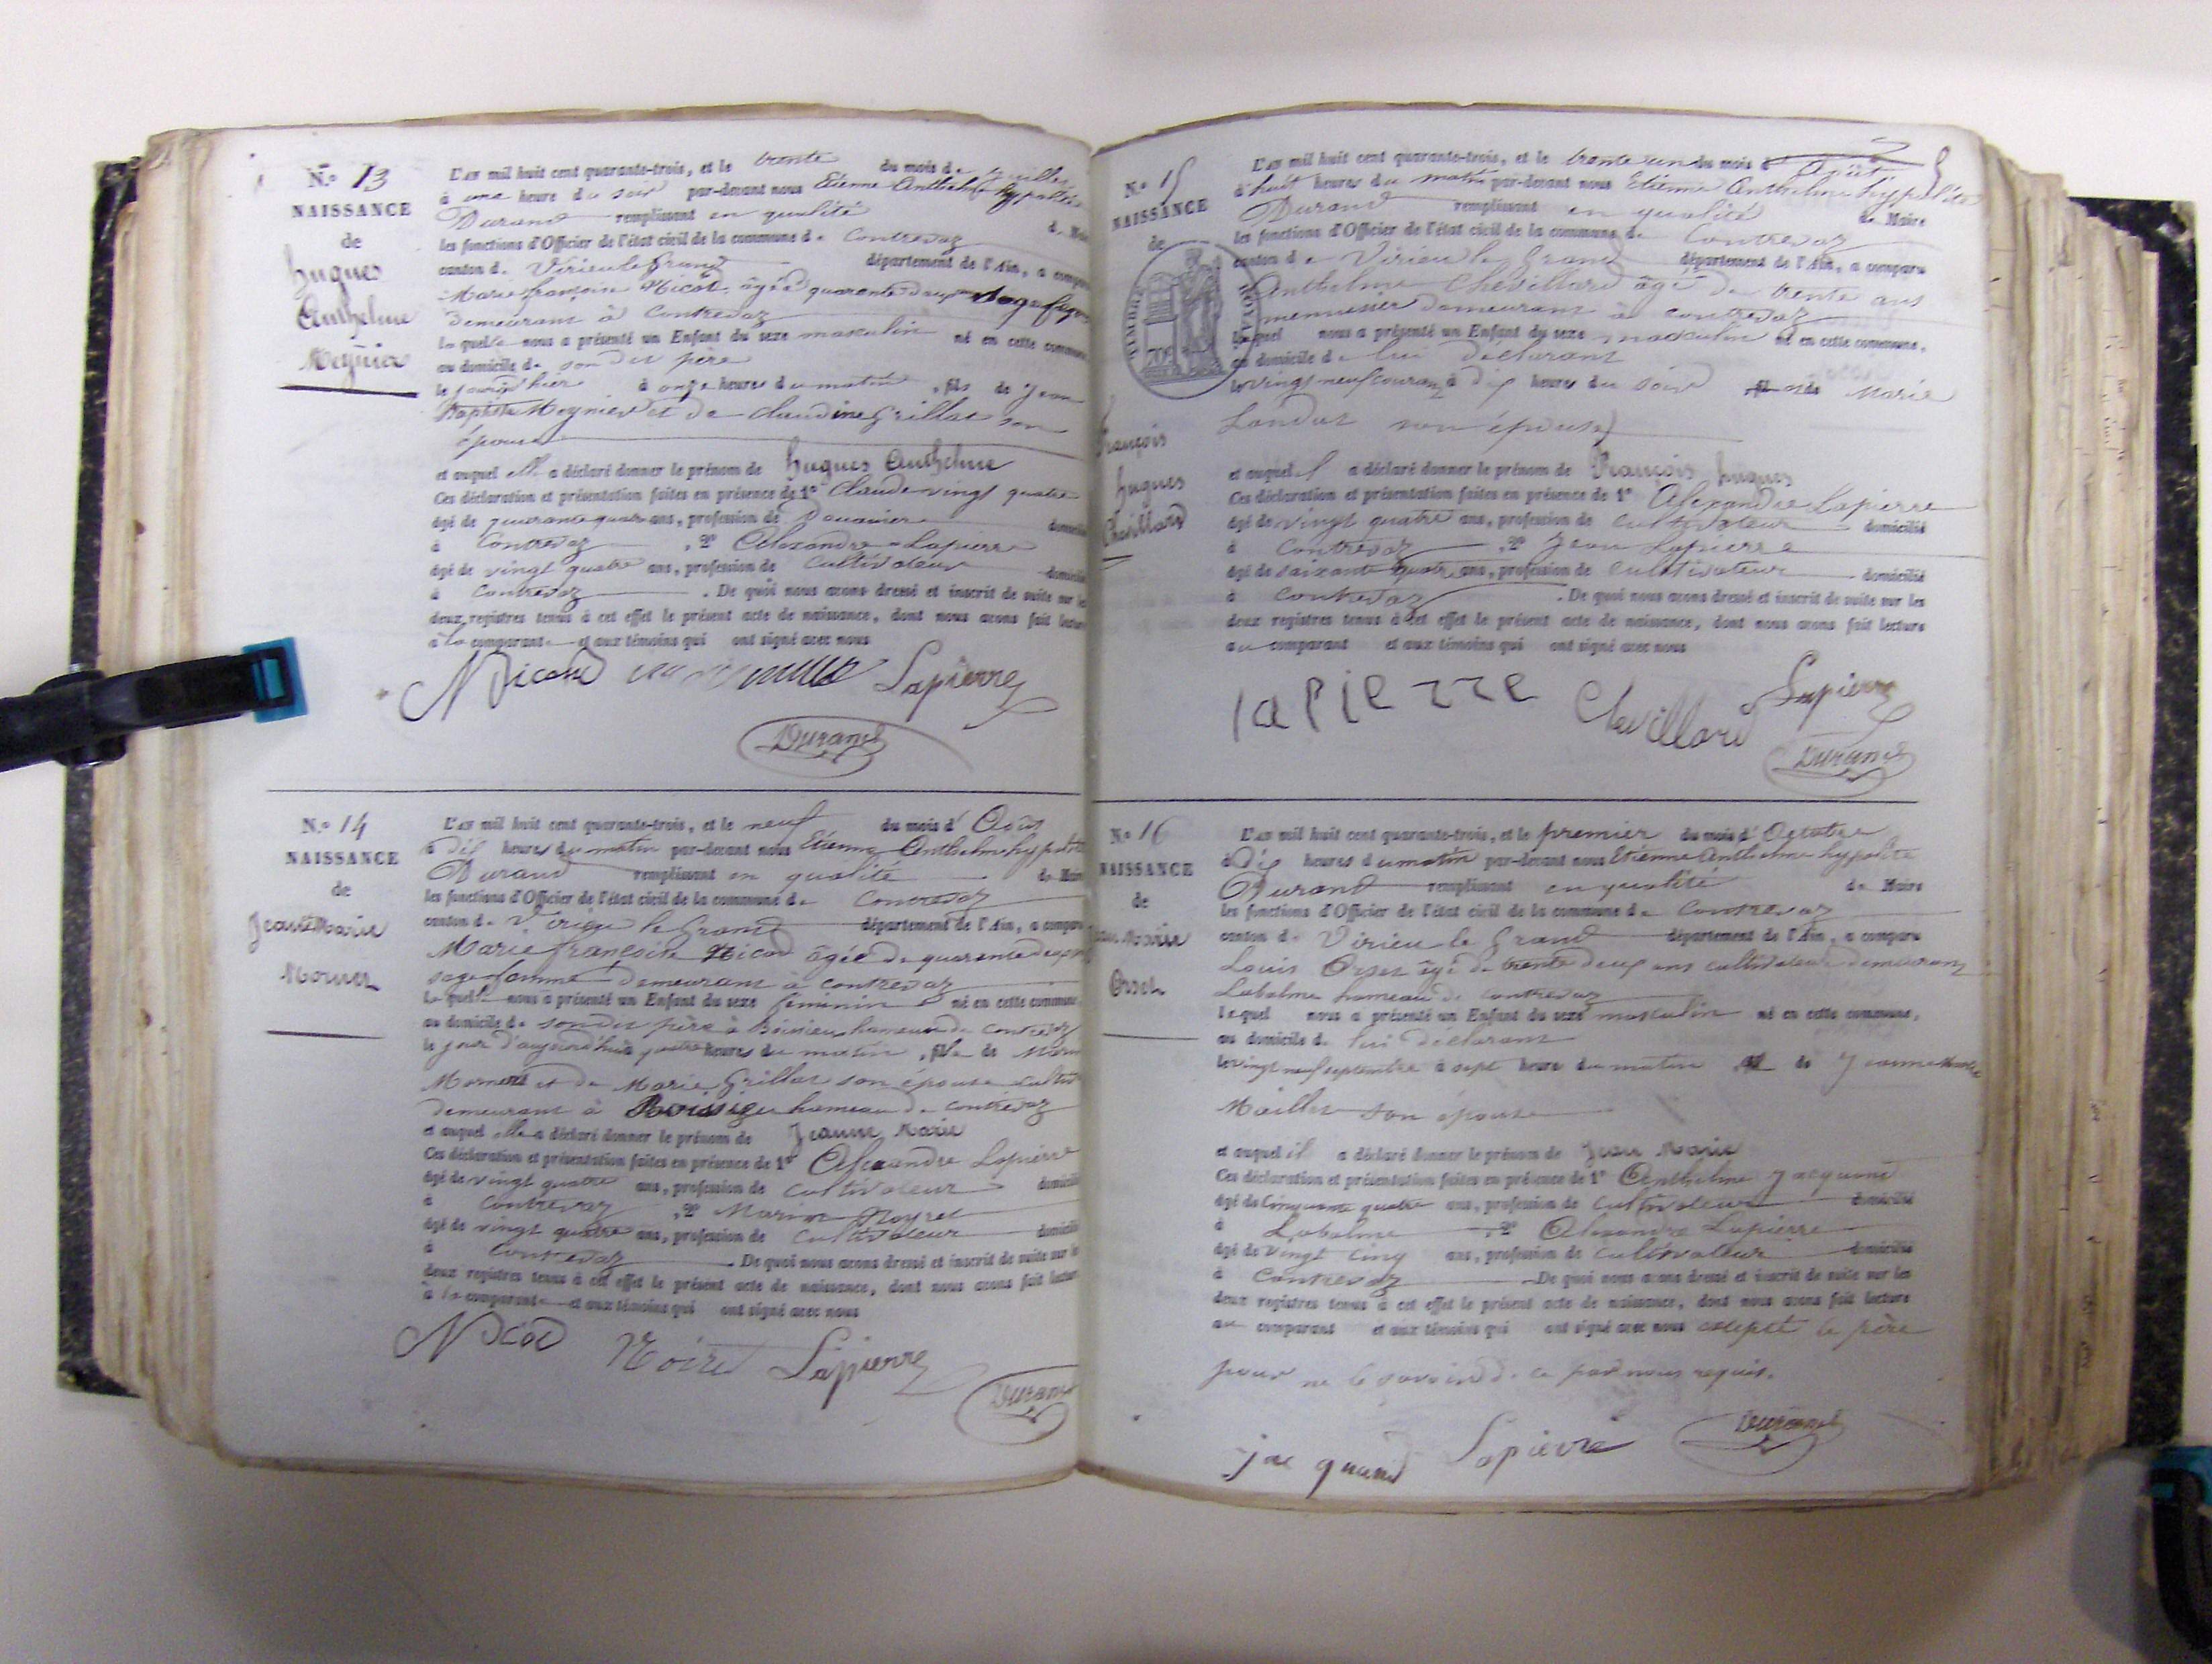 N.° 13
NAISSANCE
de
hugues
Anthelme
Meynier
L'an mil huit cent quarante-trois, et le trente du mois de juillet
à une heure du soir par-devant nous Etienne Anthelme hyppolite
Durand remplissant en qualité de Maire
les fonctions d'Officier de l'état civil de la commune de Contrevoz
canton de Virieu le Grand département de l'Ain, a comparu
Marie françoise Nicod, âgée quarante deux ans sage femme
demeurant à Contrevoz
laquelle nous a présenté un Enfant du sexe masculin né en cette commune
au domicile de son dit père
le jour d'hier à onze heures du matin, fils de Jean
Baptiste Meynier et de claudine Grillat son
épouse
et auquel elle a déclaré donner le prénom de hugues Anthelme
Ces déclaration et présentation faites en présence de 1° Claude vingt quatre
âgé de quarante quatre ans, profession de Douanier domicilié
à Contrevoz, 2° Alexandre Lapierre
âgé de vingt quatre ans, profession de Cultivateur domicilié
à Contrevoz. De quoi nous avons dressé et inscrit de suite sur les
deux registres tenus à cet effet le présent acte de naissance, dont nous avons fait lecture
à la comparante et aux témoins qui ont signé avec nous
Nicod Lapierre
Durand
N.° 14
NAISSANCE
de
Jeanne Marie
L'an mil huit cent quarante-trois, et le neuf du mois d'Août
à dix heures du matin par-devant nous Etienne Anthelme hyppolite
Durand remplissant en qualité de Maire
les fonctions d'Officier de l'état civil de la commune de Contrevoz
canton de Virieu le Grand département de l'Ain, a comparu
Marie françoise Nicod âgée de quarante deux
sage femme demeurant à contrevoz
laquelle nous a présenté un Enfant du sexe féminin né en cette commune
au domicile de son dit père à hameau de contrevoz
le jour d'aujourd'hui à quatre heures du matin, fille de
et de Marie Grillat son épouse
demeurant à hameau de contrevoz
et auquel elle a déclaré donner le prénom de Jeanne Marie
Ces déclaration et présentation faites en présence de 1° Alexandre Lapierre
âgé de vingt quatre ans, profession de Cultivateur domicilié
à Contrevoz, 2°
âgé de vingt quatre ans, profession de Cultivateur domicilié
à Contrevoz. De quoi nous avons dressé et inscrit de suite sur les
deux registres tenus à cet effet le présent acte de naissance, dont nous avons fait lecture
à la comparante et aux témoins qui ont signé avec nous
Nicod Lapierre
Durand
N.° 15
NAISSANCE
de
TIMBRE ROYAL
70c
François
hugues
Chevillard
L'an mil huit cent quarante-trois, et le trente un du mois d'Août
à huit heures du matin par-devant nous Etienne Anthelme hyppolite
Durand remplissant en qualité de Maire
les fonctions d'Officier de l'état civil de la commune de Contrevoz
canton de Virieu le Grand département de l'Ain, a comparu
Anthelme Chevillard âgé de trente ans
menuisier demeurant à contrevoz
lequel nous a présenté un Enfant du sexe masculin né en cette commune,
au domicile de lui déclarant
le vingt neuf courant à dix heures du soir et de Marie
Landat son épouse
et auquel il a déclaré donner le prénom de François hugues
Ces déclaration et présentation faites en présence de 1° Alexandre Lapierre
âgé de vingt quatre ans, profession de Cultivateur domicilié
à Contrevoz, 2° Jean Lapierre
âgé de soixante quatre ans, profession de Cultivateur domicilié
à Contrevoz. De quoi nous avons dressé et inscrit de suite sur les
deux registres tenus à cet effet le présent acte de naissance, dont nous avons fait lecture
au comparant et aux témoins qui ont signé avec nous
lapierre Chevillard Lapierre
Durand
N.° 16
NAISSANCE
de
Jean Marie
Orset
L'an mil huit cent quarante-trois, et le premier du mois d'Octobre
à dix heures du matin par-devant nous Etienne Anthelme hypolite
Durand remplissant en qualité de Maire
les fonctions d'Officier de l'état civil de la commune de Contrevoz
canton de Virieu le Grand département de l'Ain, a comparu
Louis Orset âgé de trente deux ans cultivateur demeurant
Labalme hameau de contrevoz
lequel nous a présenté un Enfant du sexe masculin né en cette commune,
au domicile de lui déclarant
le vingt neuf septembre à sept heure du matin et de Jeanne Marie
Maillet son épouse
et auquel il a déclaré donner le prénom de Jean Marie
Ces déclaration et présentation faites en présence de 1° Anthelme Jacquand
âgé de Cinquante quatre ans, profession de Cultivateur domicilié
à Labalme, 2° Alexandre Lapierre
âgé de Vingt cinq ans, profession de Cultivateur domicilié
à Contrevoz. De quoi nous avons dressé et inscrit de suite sur les
deux registres tenus à cet effet le présent acte de naissance, dont nous avons fait lecture
au comparant et aux témoins qui ont signé avec nous excepté le père
pour ne le savoir de ce par nous requis.
jacquand Lapierre Durand